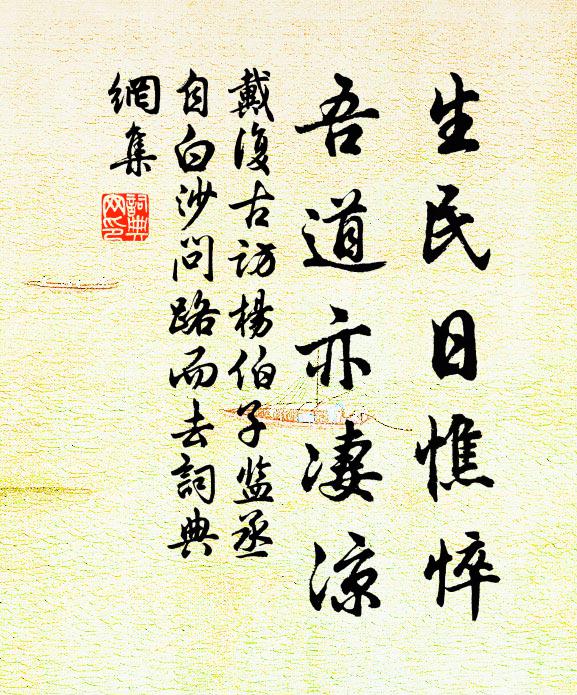 生民日憔悴
吾道亦凄涼
戴復古訪楊伯子监丞
自白沙問路而去詞典
網集
詞典
网印